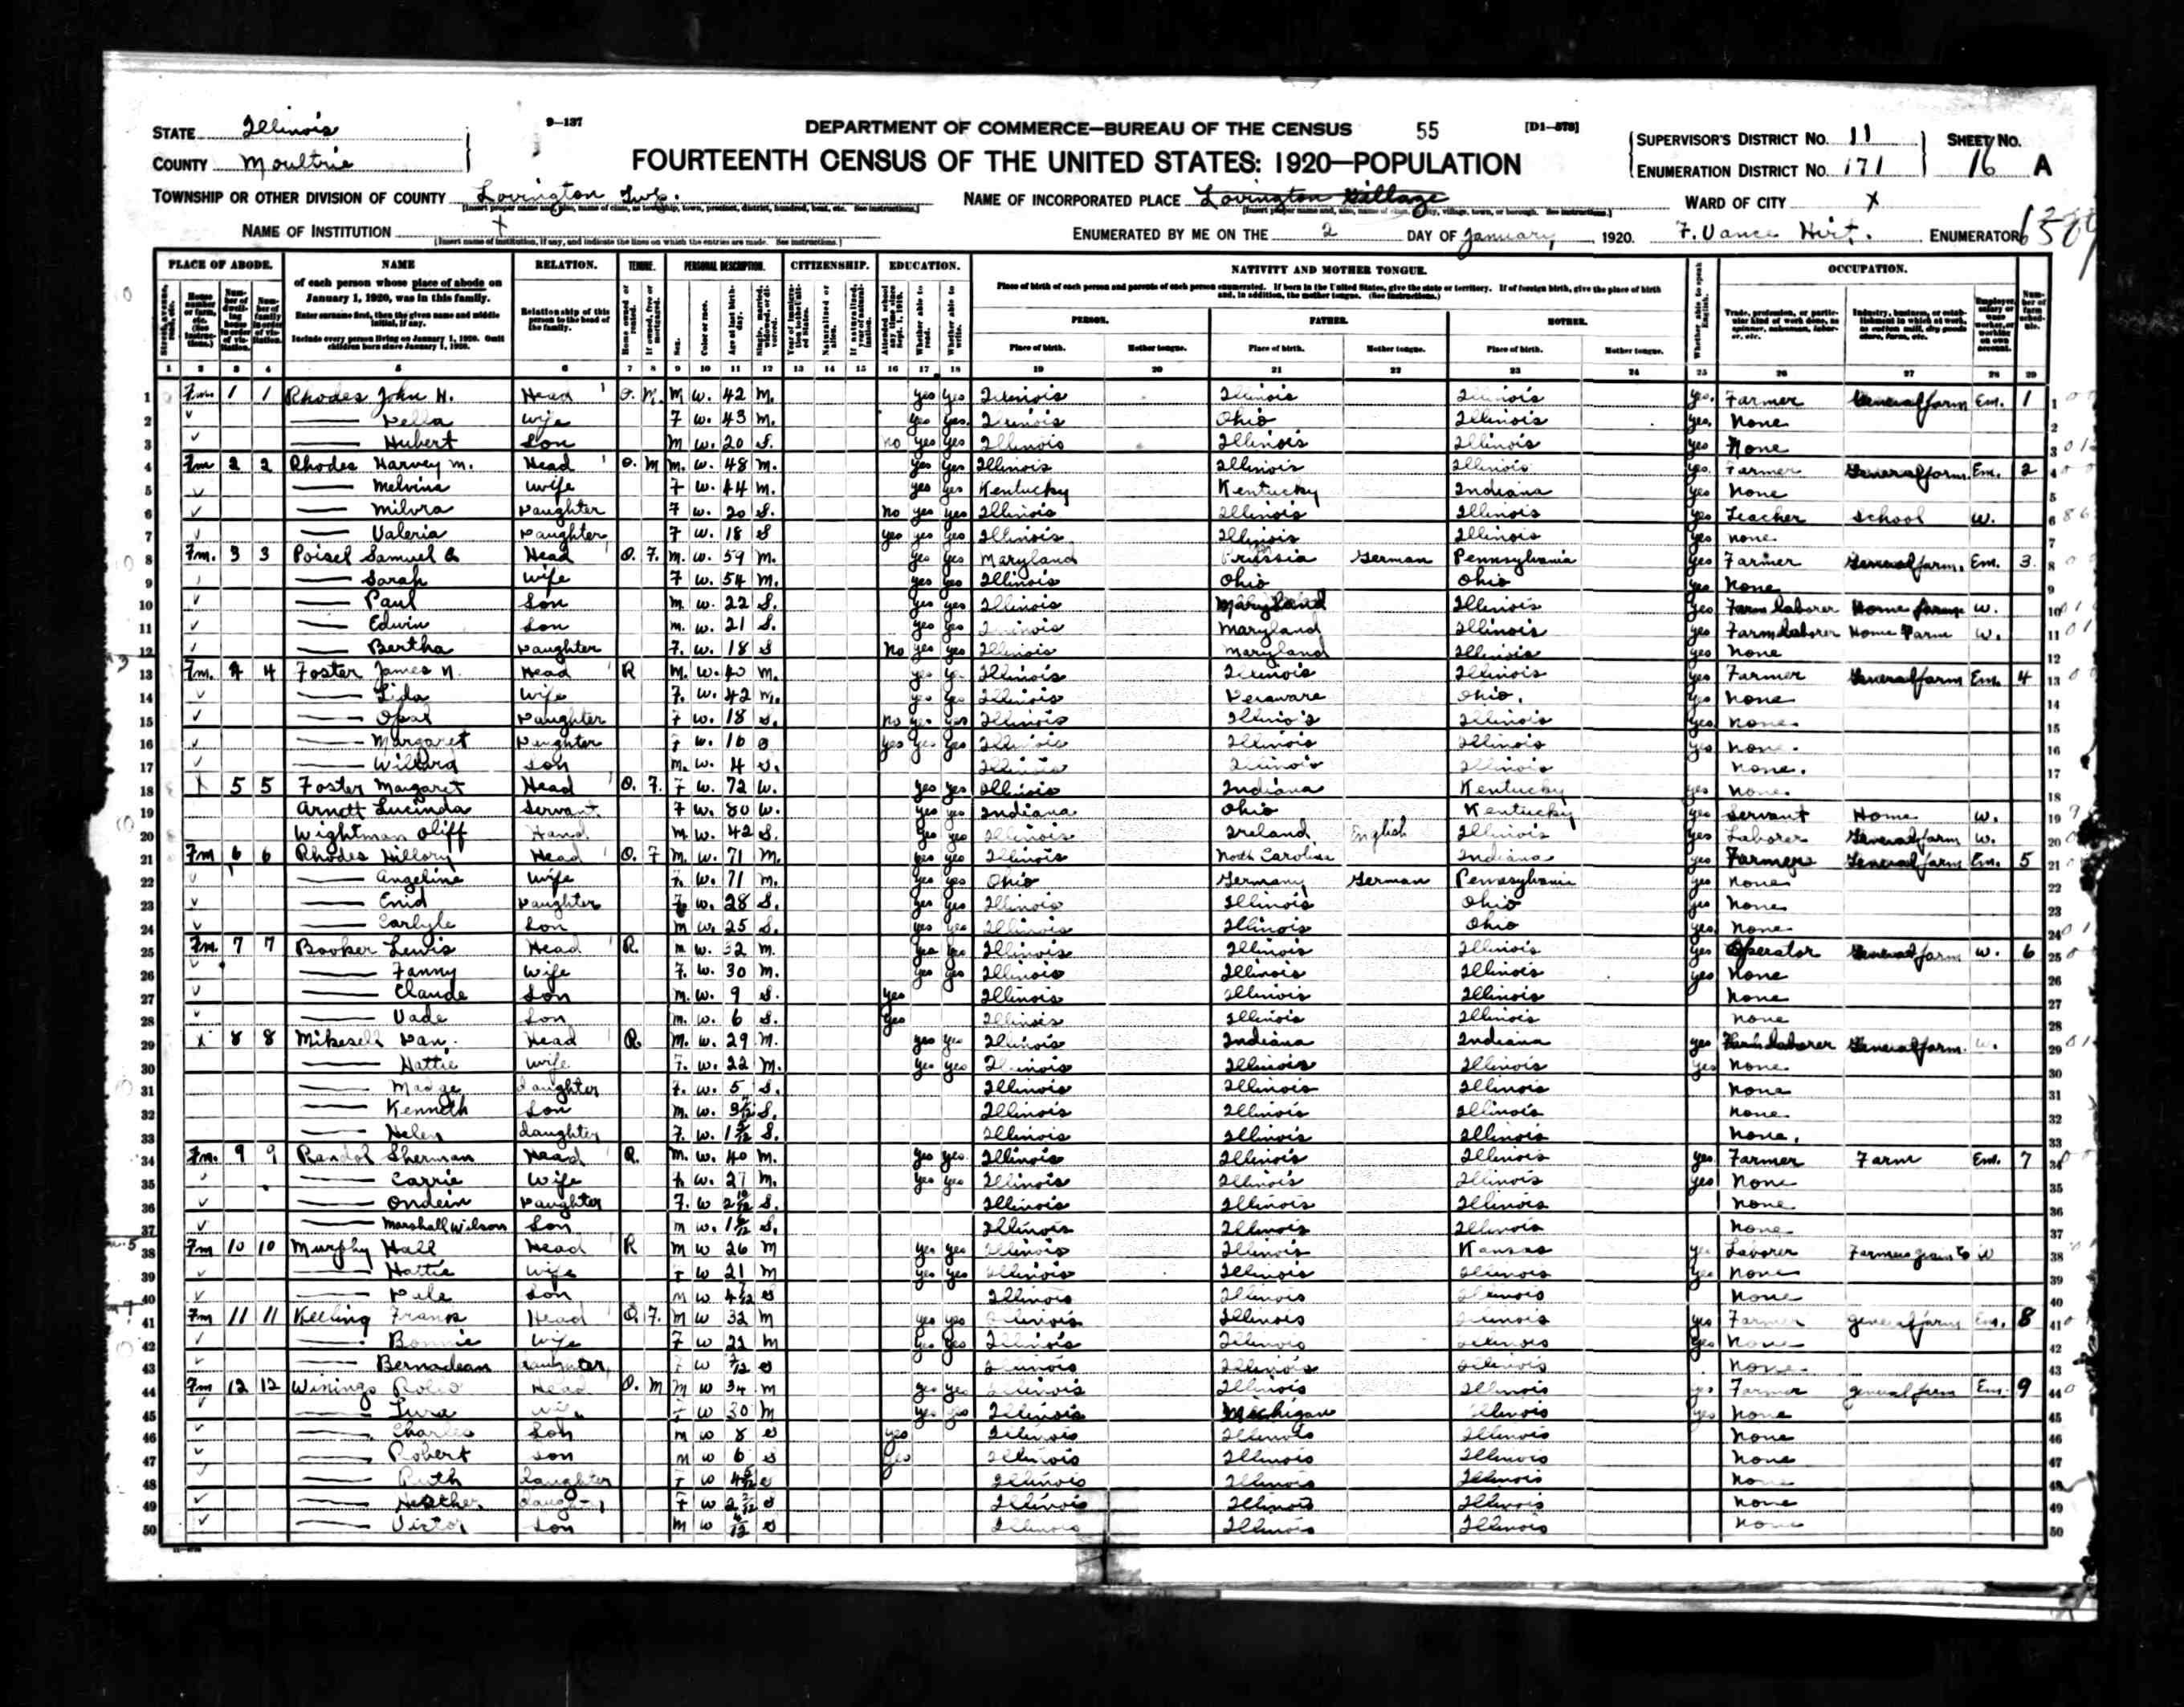 STATE Illinois
COUNTY Moultrie
9—137
DEPARTMENT OF COMMERCE—BUREAU OF THE CENSUS
55
FOURTEENTH CENSUS OF THE UNITED STATES: 1920—POPULATION
SUPERVISOR'S DISTRICT No. 11
ENUMERATION DISTRICT No. 171
SHEET No. 16 A
TOWNSHIP OR OTHER DIVISION OF COUNTY Lovington Twp.
NAME OF INCORPORATED PLACE Lovington Village
WARD OF CITY X
NAME OF INSTITUTION X
ENUMERATED BY ME ON THE 2 DAY OF January, 1920. F. Vance Hirt. ENUMERATOR
PLACE OF ABODE. NAME RELATION. TENURE. PERSONAL DESCRIPTION. CITIZENSHIP. EDUCATION. NATIVITY AND MOTHER TONGUE. OCCUPATION.
of each person whose place of abode on January 1, 1920, was in this family.
Enter surname first, then the given name and middle initial, if any.
Include every person living on January 1, 1920. Omit children born since January 1, 1920.
Relationship of this person to the head of the family.
Place of birth of each person and parents of each person enumerated. If born in the United States, give the state or territory. If of foreign birth, give the place of birth and, in addition, the mother tongue. (See instructions.)
PERSON. FATHER. MOTHER.
Place of birth. Mother tongue. Place of birth. Mother tongue. Place of birth. Mother tongue.
1 2 3 4 5 6 7 8 9 10 11 12 13 14 15 16 17 18 19 20 21 22 23 24 25 26 27 28 29
1 Fm 1 1 Rhodes John H. Head O. M. M w. 42 M. yes yes Illinois Illinois Illinois yes. Farmer General farm Em. 1
2 Della wife F w. 43 m. yes yes Illinois Ohio Illinois yes None
3 Hubert Son M w. 20 S. no yes yes Illinois Illinois Illinois yes None
4 Fm 2 2 Rhodes Harvey M. Head O. M m. w. 48 m. yes yes Illinois Illinois Illinois yes. Farmer General farm. Em. 2
5 Melvina wife F w. 44 m. yes yes Kentucky Kentucky Indiana yes None
6 Milvra Daughter F w. 20 S. no yes yes Illinois Illinois Illinois yes Teacher School w.
7 Valeria Daughter F w. 18 S yes yes yes Illinois Illinois Illinois yes none
8 Fm. 3 3 Poisel Samuel Head O. F. M. w. 59 M. yes yes Maryland Prussia German Pennsylvania yes Farmer General farm. Em. 3
9 Sarah wife F w. 54 M. yes yes Illinois Ohio Ohio yes None
10 Paul Son m w. 22 S. yes yes Illinois Maryland Illinois yes Farm laborer Home farm w.
11 Edwin Son m. w. 21 S. yes yes Illinois Maryland Illinois yes Farm laborer Home Farm w.
12 Bertha Daughter F. w. 18 S No yes yes Illinois Maryland Illinois yes None
13 Fm. 4 4 Foster James N. Head R M. w. 40 M. yes yes Illinois Illinois Illinois yes Farmer General farm Em. 4
14 Lida Wife F. w. 42 m. yes yes Illinois Deraware Ohio. yes None
15 Opal Daughter F w. 18 S. no yes yes Illinois Illinois Illinois yes none
16 Margaret Daughter F w. 16 S yes yes yes Illinois Illinois Illinois yes none
17 Willard Son m. w. 4 S. Illinois Illinois Illinois none.
18 X 5 5 Foster Margaret Head O. F. F w. 72 w. yes yes Illinois Indiana Kentucky yes none.
19 Arnett Lucinda Servant F w. 80 w. yes yes Indiana Ohio Kentucky yes Servant Home w.
20 Wightman Oliff Hand M w. 42 S. yes yes Illinois Ireland English Illinois yes Laborer General farm w.
21 Fm 6 6 Rhodes Hillory Head O. F M. w. 71 M. yes yes Illinois North Carolina Indiana yes Farmer General farm Em. 5
22 Angeline Wife F. w. 71 m. yes yes Ohio Germany German Pennsylvania yes None
23 Enid Daughter F w. 28 S. yes yes Illinois Illinois Ohio yes None
24 Carlyle Son M w. 25 S. yes yes Illinois Illinois Ohio yes None
25 Fm. 7 7 Booker Lewis Head R. m w. 32 m. yes yes Illinois Illinois Illinois yes Operator General farm w. 6
26 Fanny Wife F. w. 30 m. yes yes Illinois Illinois Illinois yes None
27 Claude Son m. w. 9 S. yes Illinois Illinois Illinois None
28 Vade Son m. w. 6 S. yes Illinois Illinois Illinois none
29 X 8 8 Mikesell Dan. Head R. M. w. 29 M. yes yes Illinois Indiana Indiana yes Farm laborer General farm. w.
30 Hattie wife F. w. 22 M. yes yes Illinois Illinois Illinois yes None
31 Madge daughter F. w. 5 S. Illinois Illinois Illinois None
32 Kenneth Son m. w. S. Illinois Illinois Illinois None
33 Helen daughter F. w. S. Illinois Illinois Illinois None.
34 Fm. 9 9 Randol Sherman Head R. M. w. 40 M. yes yes Illinois Illinois Illinois yes Farmer Farm Em. 7
35 Carrie Wife F w. 27 m. yes yes Illinois Illinois Illinois yes None
36 Ondein Daughter F. w 2 10/12 S. Illinois Illinois Illinois None
37 Marshall Wilson Son m w. S. Illinois Illinois Illinois None
38 Fm 10 10 Murphy Hall Head R M w 26 M yes yes Illinois Illinois Kansas yes Laborer Farmers grain Co W
39 Hattie Wife F w 21 M yes yes Illinois Illinois Illinois yes None
40 Son M w S Illinois Illinois Illinois None
41 Fm 11 11 Keeling Frank Head O. F. M w 32 M yes yes Illinois Illinois Illinois yes Farmer general farm Em. 8
42 Bonnie Wife F w 22 M yes yes Illinois Illinois Illinois yes None
43 Bernadean daughter F w 7/12 S Illinois Illinois Illinois None
44 Fm 12 12 Winings Head O. M M w 34 M yes yes Illinois Illinois Illinois yes Farmer general farm Em. 9
45 Wife F w 30 M yes yes Illinois Michigan Illinois yes None
46 Charles Son M w 8 S yes Illinois Illinois Illinois None
47 Robert Son M w 6 S yes Illinois Illinois Illinois None
48 Ruth daughter F w S Illinois Illinois Illinois None
49 daughter F w S Illinois Illinois Illinois None
50 Victor Son M w S Illinois Illinois Illinois None